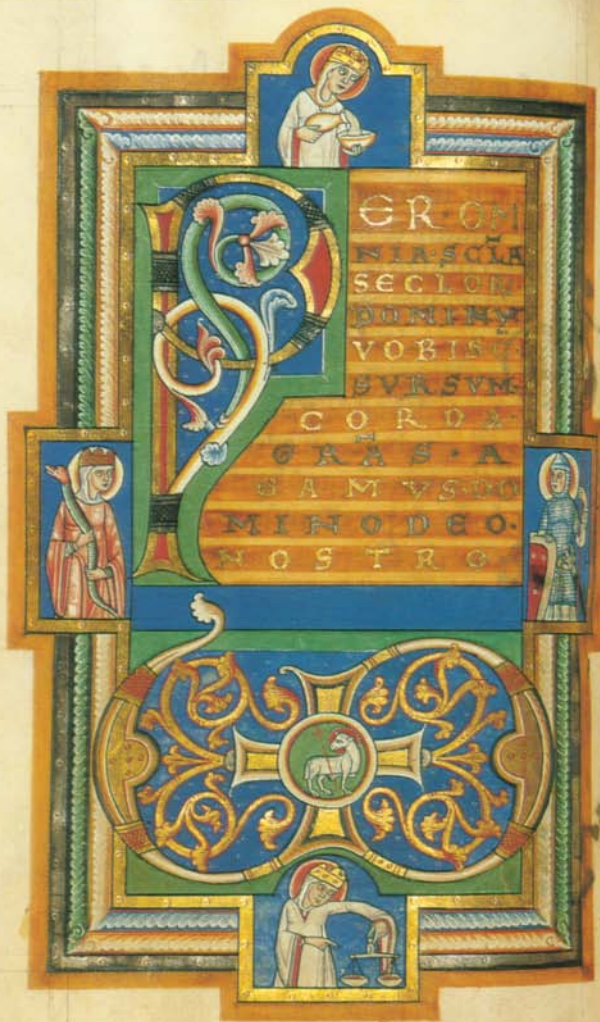 PER·OM
NIA·SCLA
SECLOR
DOMINV
VOBISC
SVRSVM·
CORDA·
GRAS·A
GAMVS·DO
MINO DEO·
NOSTRO